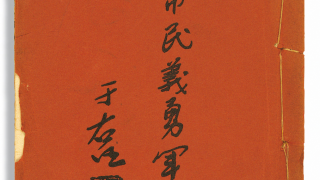 市民義勇軍
于右任